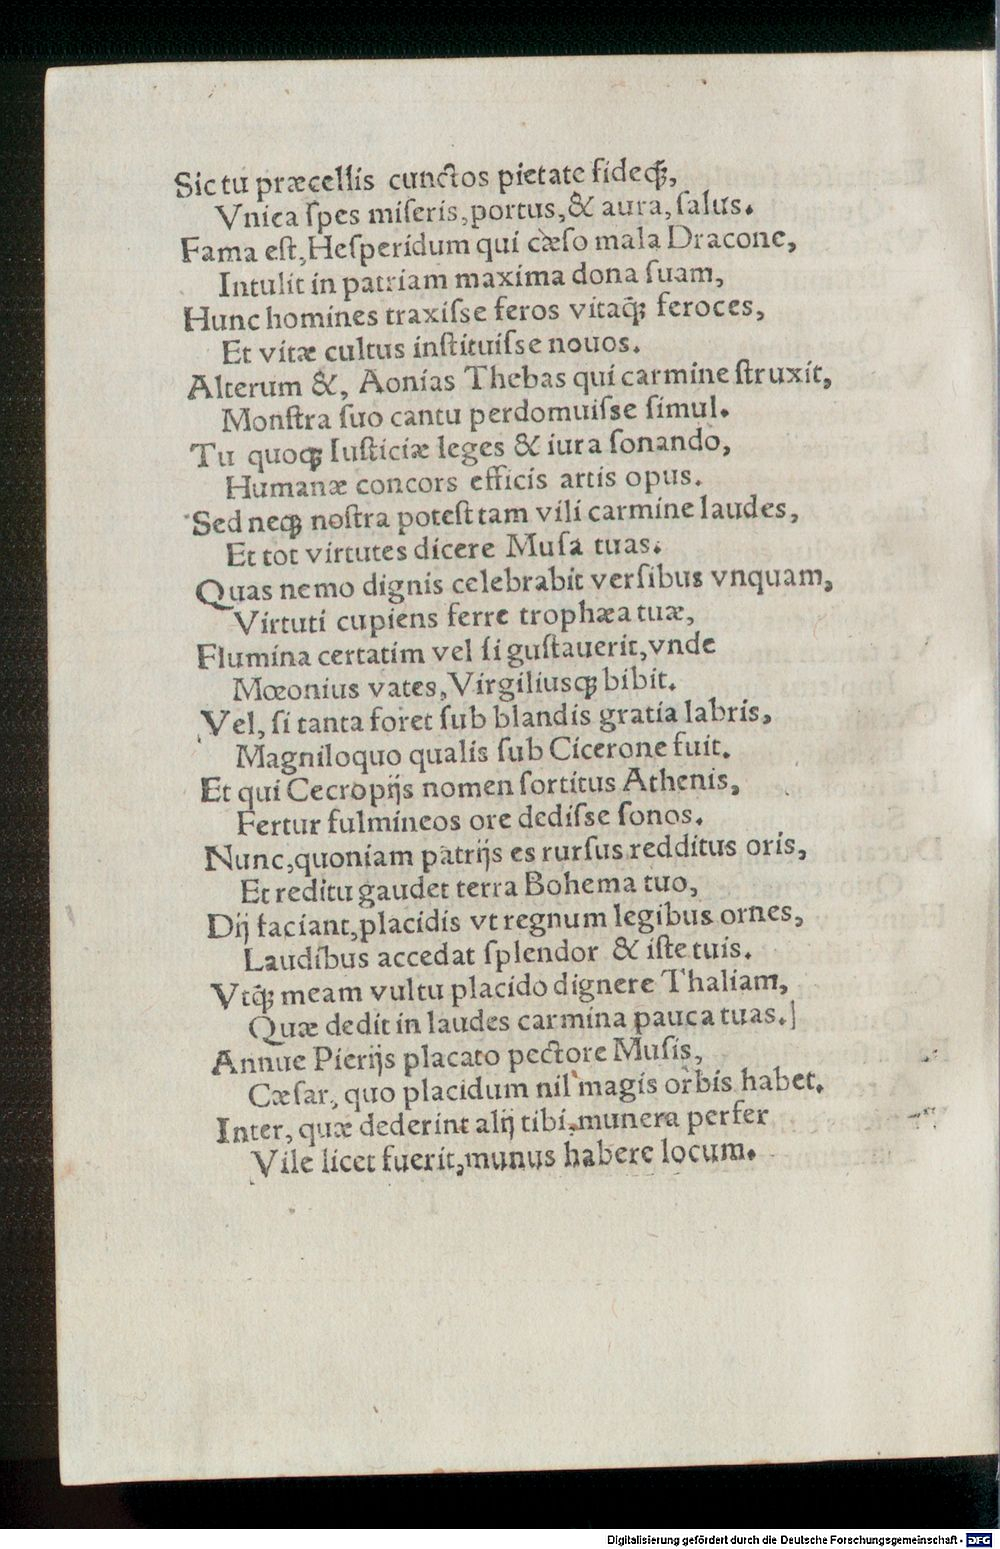 Sic tu præcellis cunctos pietate fideqꝫ,
Vnica ſpes miſeris, portus, & aura, ſalus.
Fama eſt, Heſperidum qui cæſo mala Dracone,
Intulit in patriam maxima dona ſuam,
Hunc homines traxiſse feros vitaqꝫ feroces,
Et vitæ cultus inſtituiſse nouos.
Alterum &, Aonias Thebas qui carmine ſtruxit,
Monſtra ſuo cantu perdomuiſse ſimul.
Tu quoqꝫ Iuſticiæ leges & iura ſonando,
Humanæ concors efficis artis opus.
Sed neqꝫ noſtra poteſt tam vili carmine laudes,
Et tot virtutes dicere Muſa tuas.
Quas nemo dignis celebrabit verſibus vnquam,
Virtuti cupiens ferre trophæa tuæ,
Flumina certatim vel ſi guſtauerit, vnde
Mœonius vates, Virgiliusqꝫ bibit.
Vel, ſi tanta foret ſub blandis gratia labris,
Magniloquo qualis ſub Cicerone fuit.
Et qui Cecropijs nomen ſortitus Athenis,
Fertur fulmineos ore dediſse ſonos.
Nunc, quoniam patrijs es rurſus redditus oris,
Et reditu gaudet terra Bohema tuo,
Dij faciant, placidis vt regnum legibus ornes,
Laudibus accedat ſplendor & iſte tuis.
Vtqꝫ meam vultu placido dignere Thaliam,
Quæ dedit in laudes carmina pauca tuas.]
Annue Pierijs placato pectore Muſis,
Cæſar, quo placidum nil magis orbis habet.
Inter, quæ dederint alij tibi, munera perfer
Vile licet fuerit, munus habere locum.
Digitalisierung gefördert durch die Deutsche Forschungsgemeinschaft - DFG